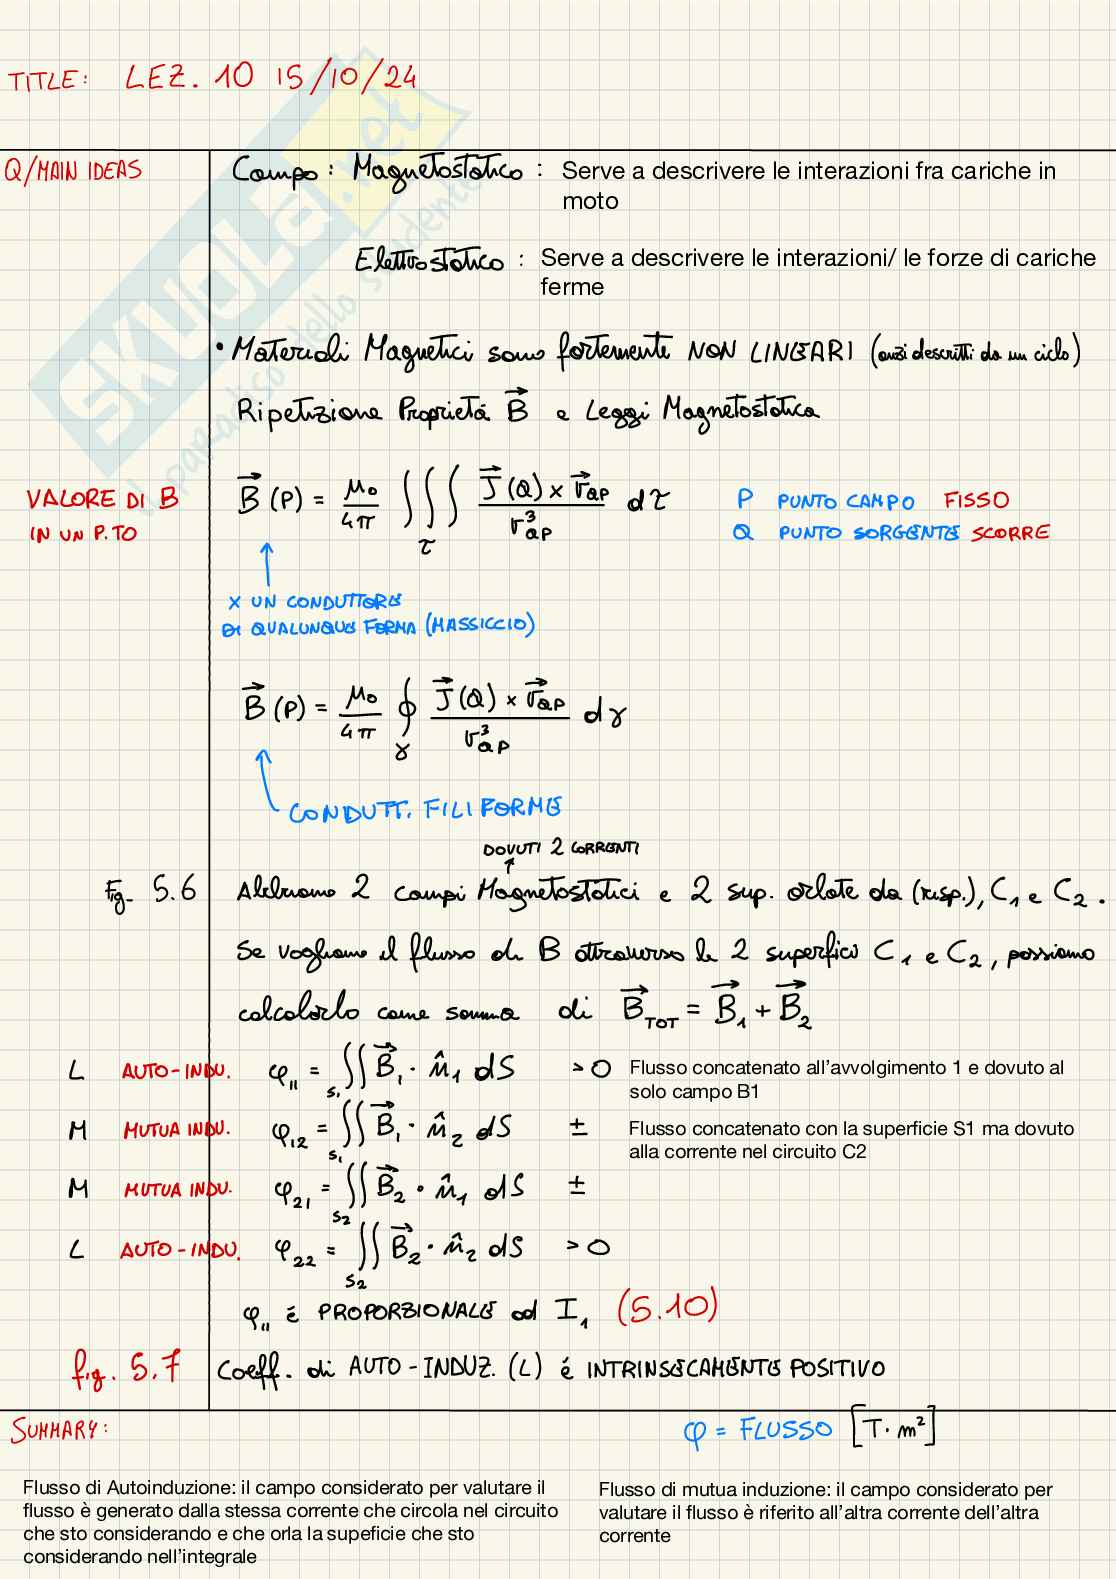 TITLE: LEZ. 10 15/10/24
Q/MAIN IDEAS
Campo: Magnetostatico: Serve a descrivere le interazioni fra cariche in
moto
Elettrostatico: Serve a descrivere le interazioni/ le forze di cariche
ferme
• Materiali Magnetici sono fortemente NON LINEARI (anzi descritti da un ciclo)
Ripetizione Proprietá B⃗ e Leggi Magnetostatica
VALORE DI B
IN UN P.TO
B⃗(P) = μ₀/4π ∭_τ J⃗(Q) × r⃗_QP / r³_QP dτ
P PUNTO CAMPO FISSO
Q PUNTO SORGENTE SCORRE
X UN CONDUTTORE
DI QUALUNQUE FORMA (MASSICCIO)
B⃗(P) = μ₀/4π ∮_γ J⃗(Q) × r⃗_QP / r³_QP dγ
CONDUTT. FILIFORME
DOVUTI 2 CORRENTI
Fig. 5.6 Abbiamo 2 campi Magnetostatici e 2 sup. orlate da (risp.), C₁ e C₂.
Se vogliamo il flusso di B attraverso le 2 superfici C₁ e C₂, possiamo
calcolarlo come somma di B⃗_TOT = B⃗₁ + B⃗₂
L AUTO-INDU. φ₁₁ = ∬_S₁ B⃗₁ · n̂₁ dS >0 Flusso concatenato all'avvolgimento 1 e dovuto al
solo campo B1
M MUTUA INDU. φ₁₂ = ∬_S₁ B⃗₁ · n̂₂ dS ± Flusso concatenato con la superficie S1 ma dovuto
alla corrente nel circuito C2
M MUTUA INDU. φ₂₁ = ∬_S₂ B⃗₂ · n̂₁ dS ±
L AUTO-INDU. φ₂₂ = ∬_S₂ B⃗₂ · n̂₂ dS >0
φ₁₁ é PROPORZIONALE ad I₁ (5.10)
fig. 5.7 Coeff. di AUTO-INDUZ. (L) é INTRINSECAMENTE POSITIVO
SUMMARY:
φ = FLUSSO [T·m²]
Flusso di Autoinduzione: il campo considerato per valutare il
flusso è generato dalla stessa corrente che circola nel circuito
che sto considerando e che orla la supeficie che sto
considerando nell'integrale
Flusso di mutua induzione: il campo considerato per
valutare il flusso è riferito all'altra corrente dell'altra
corrente
SKUOLA.net